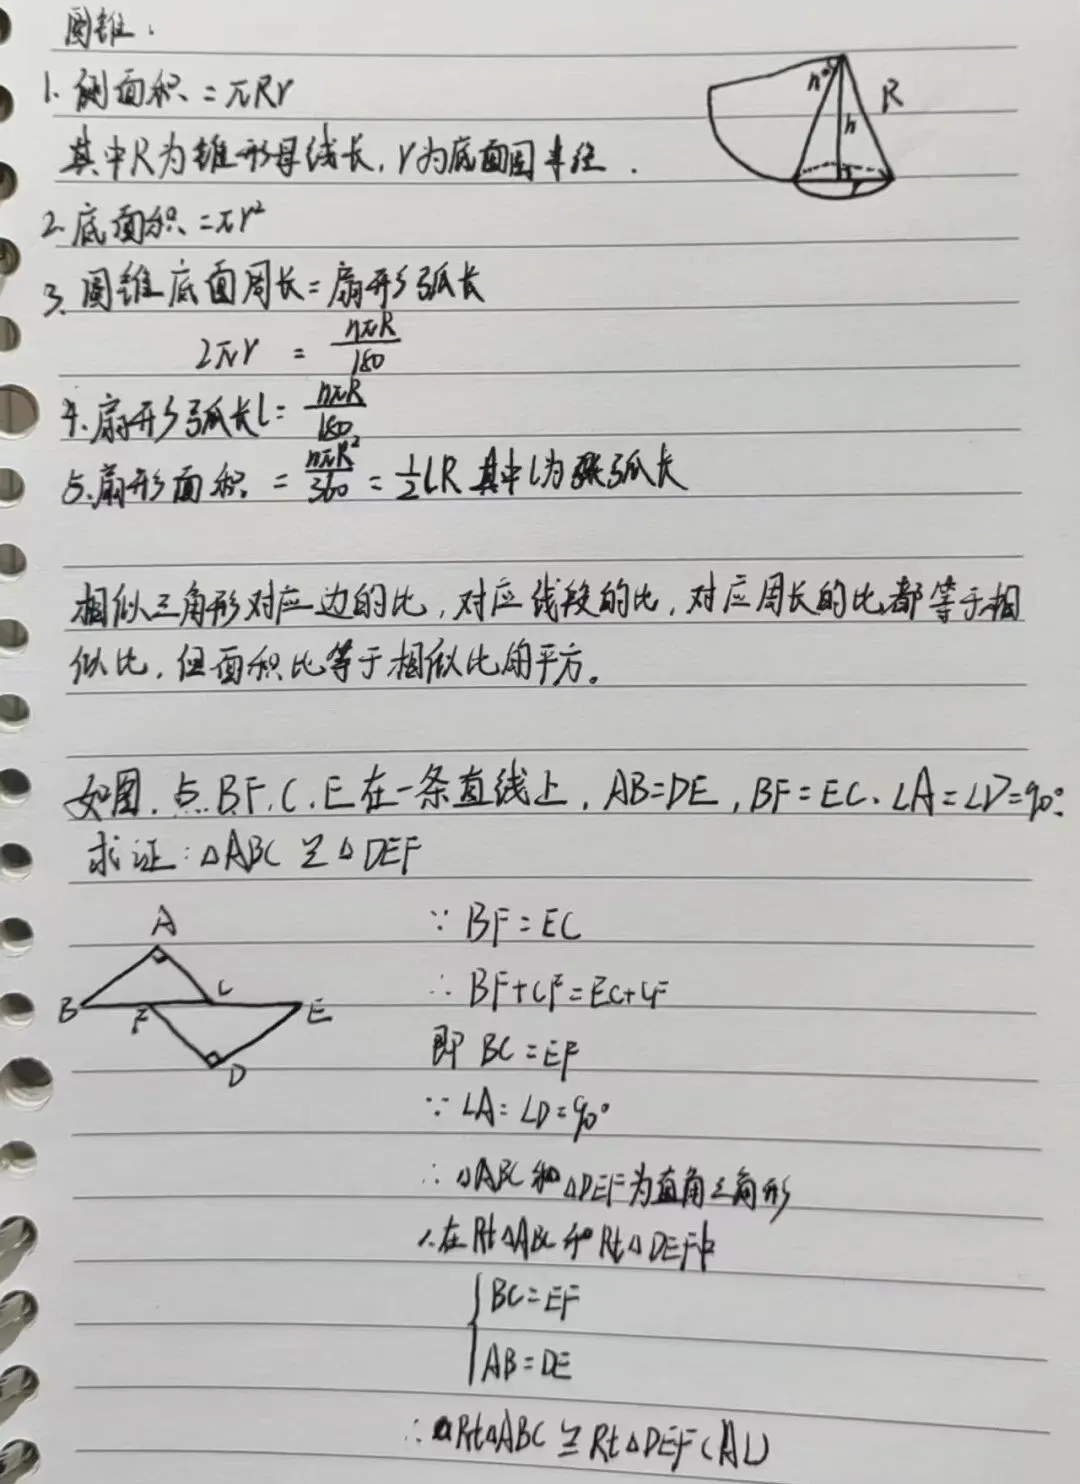 圆锥.
1. 侧面积 = πRr
其中R为锥形母线长, r为底面圆半径.
2. 底面积 = πr²
3. 圆锥底面周长 = 扇形弧长
2πr = nπR/180
4. 扇形弧长l = nπR/180
5. 扇形面积 = nπR²/360 = 1/2 lR 其中l为弧长
n°
R
h
r
相似三角形对应边的比, 对应线段的比, 对应周长的比都等于相
似比, 但面积比等于相似比的平方。
如图, 点B.F.C.E在一条直线上, AB=DE, BF=EC. ∠A=∠D=90°.
求证: △ABC ≌ △DEF
A
B
F
C
E
D
∵ BF=EC
∴ BF+CF=EC+CF
即 BC=EF
∵ ∠A=∠D=90°
∴ △ABC和△DEF为直角三角形
∴在Rt△ABC和Rt△DEF中
{BC=EF
AB=DE
∴Rt△ABC ≌ Rt△DEF (AL)